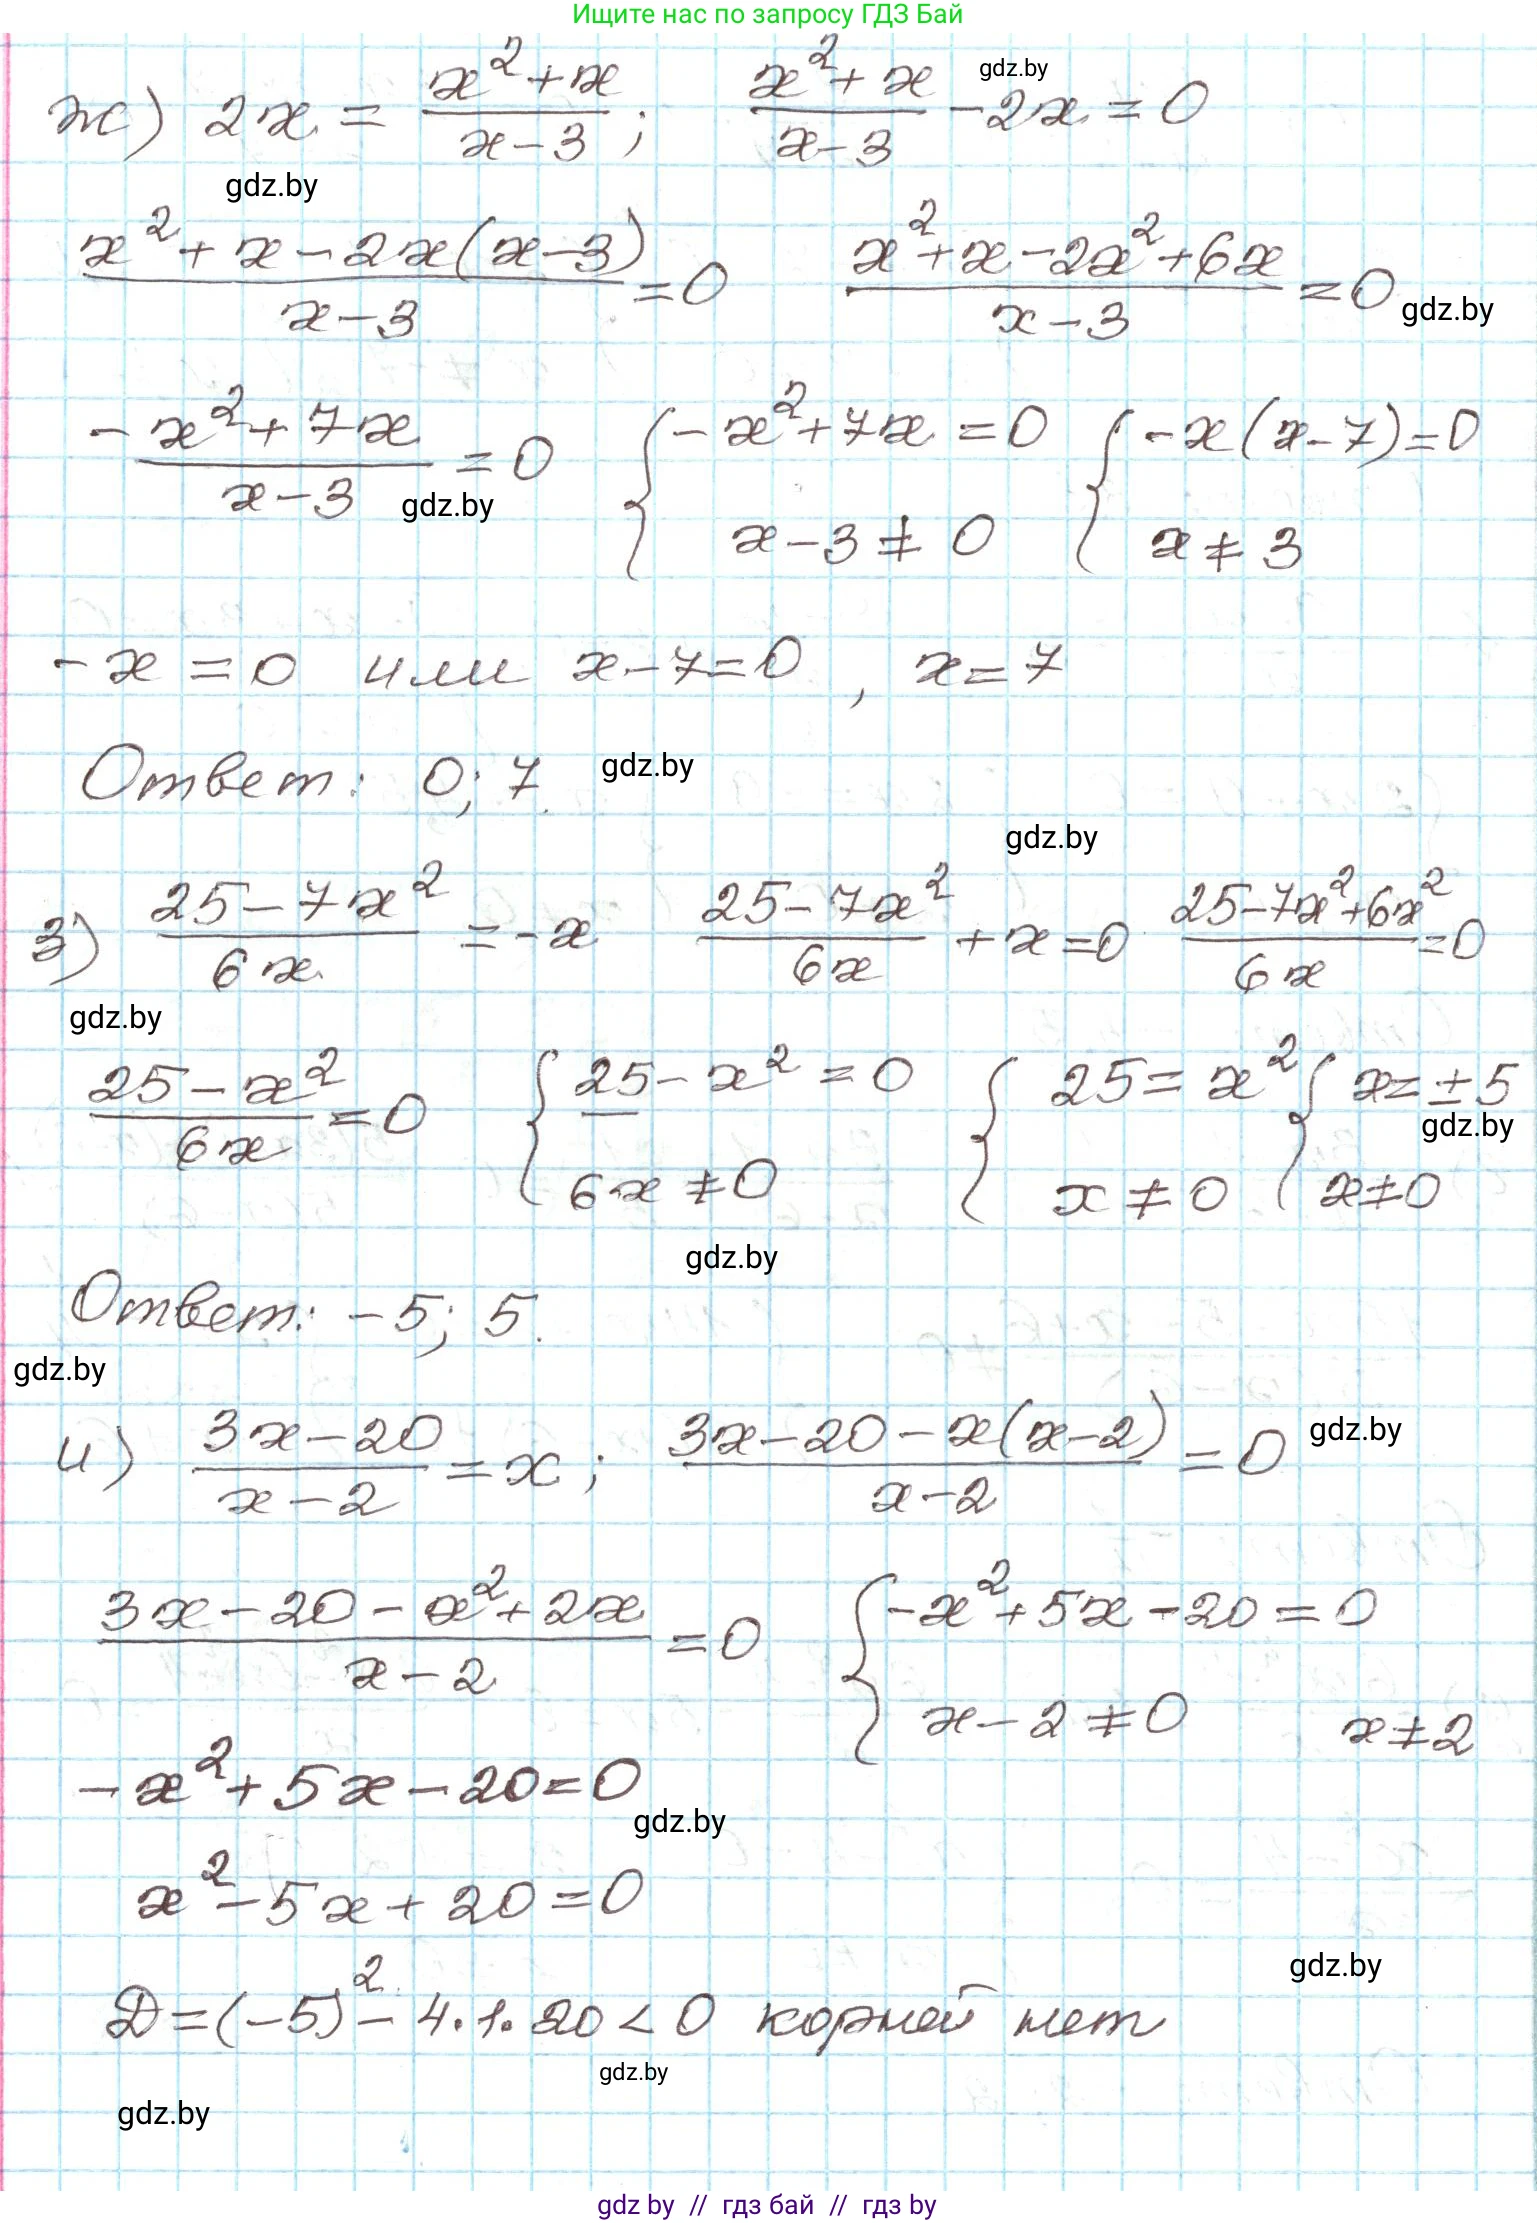 Ищите нас по запросу ГДЗ Бай
ж) 2x = (x² + x)/(x - 3); (x² + x)/(x - 3) - 2x = 0
gdz.by
gdz.by
(x² + x - 2x(x - 3))/(x - 3) = 0 (x² + x - 2x² + 6x)/(x - 3) = 0
gdz.by
(-x² + 7x)/(x - 3) = 0 { -x² + 7x = 0 { -x(x - 7) = 0
x - 3 ≠ 0 x ≠ 3
gdz.by
-x = 0 или x - 7 = 0, x = 7
Ответ: 0; 7.
gdz.by
gdz.by
з) (25 - 7x²)/(6x) = -x (25 - 7x²)/(6x) + x = 0 (25 - 7x² + 6x²)/(6x) = 0
gdz.by
(25 - x²)/(6x) = 0 { 25 - x² = 0 { 25 = x² { x = ±5
gdz.by
6x ≠ 0 x ≠ 0 x ≠ 0
gdz.by
Ответ: -5; 5.
gdz.by
и) (3x - 20)/(x - 2) = x; (3x - 20 - x(x - 2))/(x - 2) = 0
gdz.by
(3x - 20 - x² + 2x)/(x - 2) = 0 { -x² + 5x - 20 = 0
x - 2 ≠ 0 x ≠ 2
-x² + 5x - 20 = 0
gdz.by
x² - 5x + 20 = 0
gdz.by
Д = (-5)² - 4·1·20 < 0 корней нет
gdz.by
gdz.by
gdz by // гдз бай // гдз by